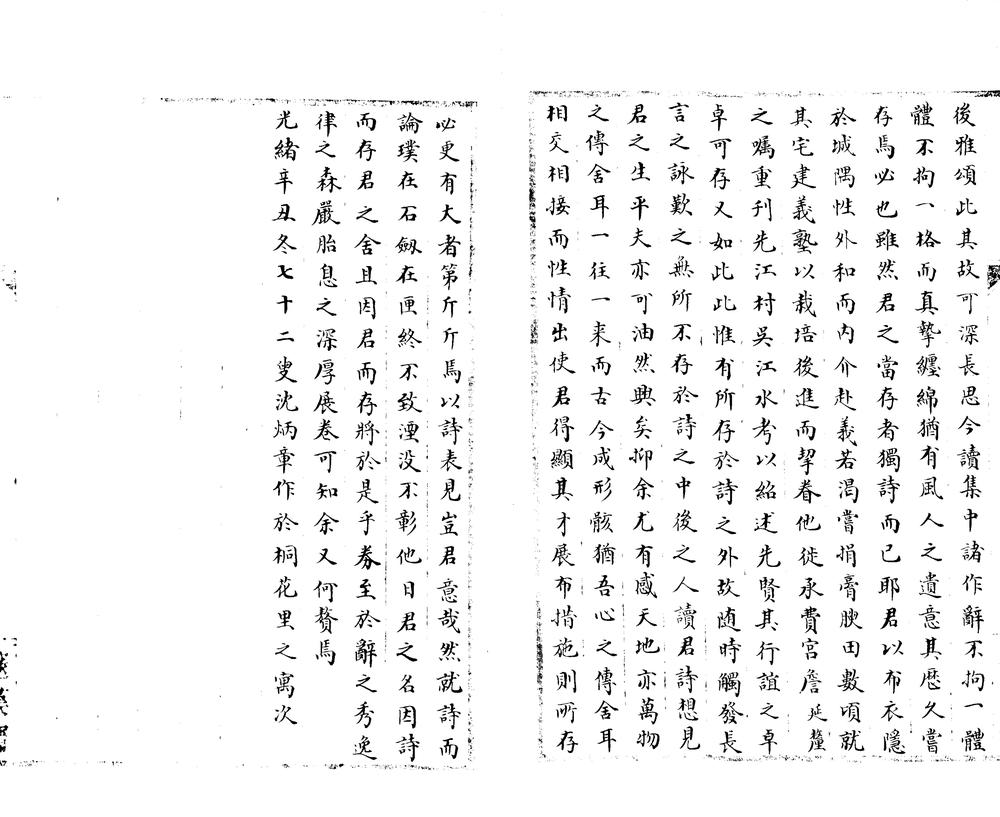 後雅頌此其故可深長思今讀集中諸作辭不拘一體
體不拘一格而真摯纏綿猶有風人之遺意其歷久嘗
存焉必也雖然君之當存者獨詩而已耶君以布衣隱
於城隅性外和而內介赴義若渴嘗捐膏腴田數頃就
其宅建義塾以栽培後進而挈眷他徙承費宮詹延釐
之囑重刊先江村吳江水考以紹述先賢其行誼之卓
卓可存又如此此惟有所存於詩之外故随時觸發長
言之詠歎之無所不存於詩之中後之人讀君詩想見
君之生平夫亦可油然興矣抑余尤有感天地亦萬物
之傳舍耳一往一来而古今成形骸猶吾心之傳舍耳
相交相接而性情出使君得顯其才展布措施則所存
必更有大者第斤斤焉以詩表見豈君意哉然就詩而
論璞在石劔在匣終不致湮没不彰他日君之名因詩
而存君之舍且因君而存將於是乎券至於辭之秀逸
律之森嚴胎息之深厚展卷可知余又何贅焉
光緒辛丑冬七十二叟沈炳章作於桐花里之寓次